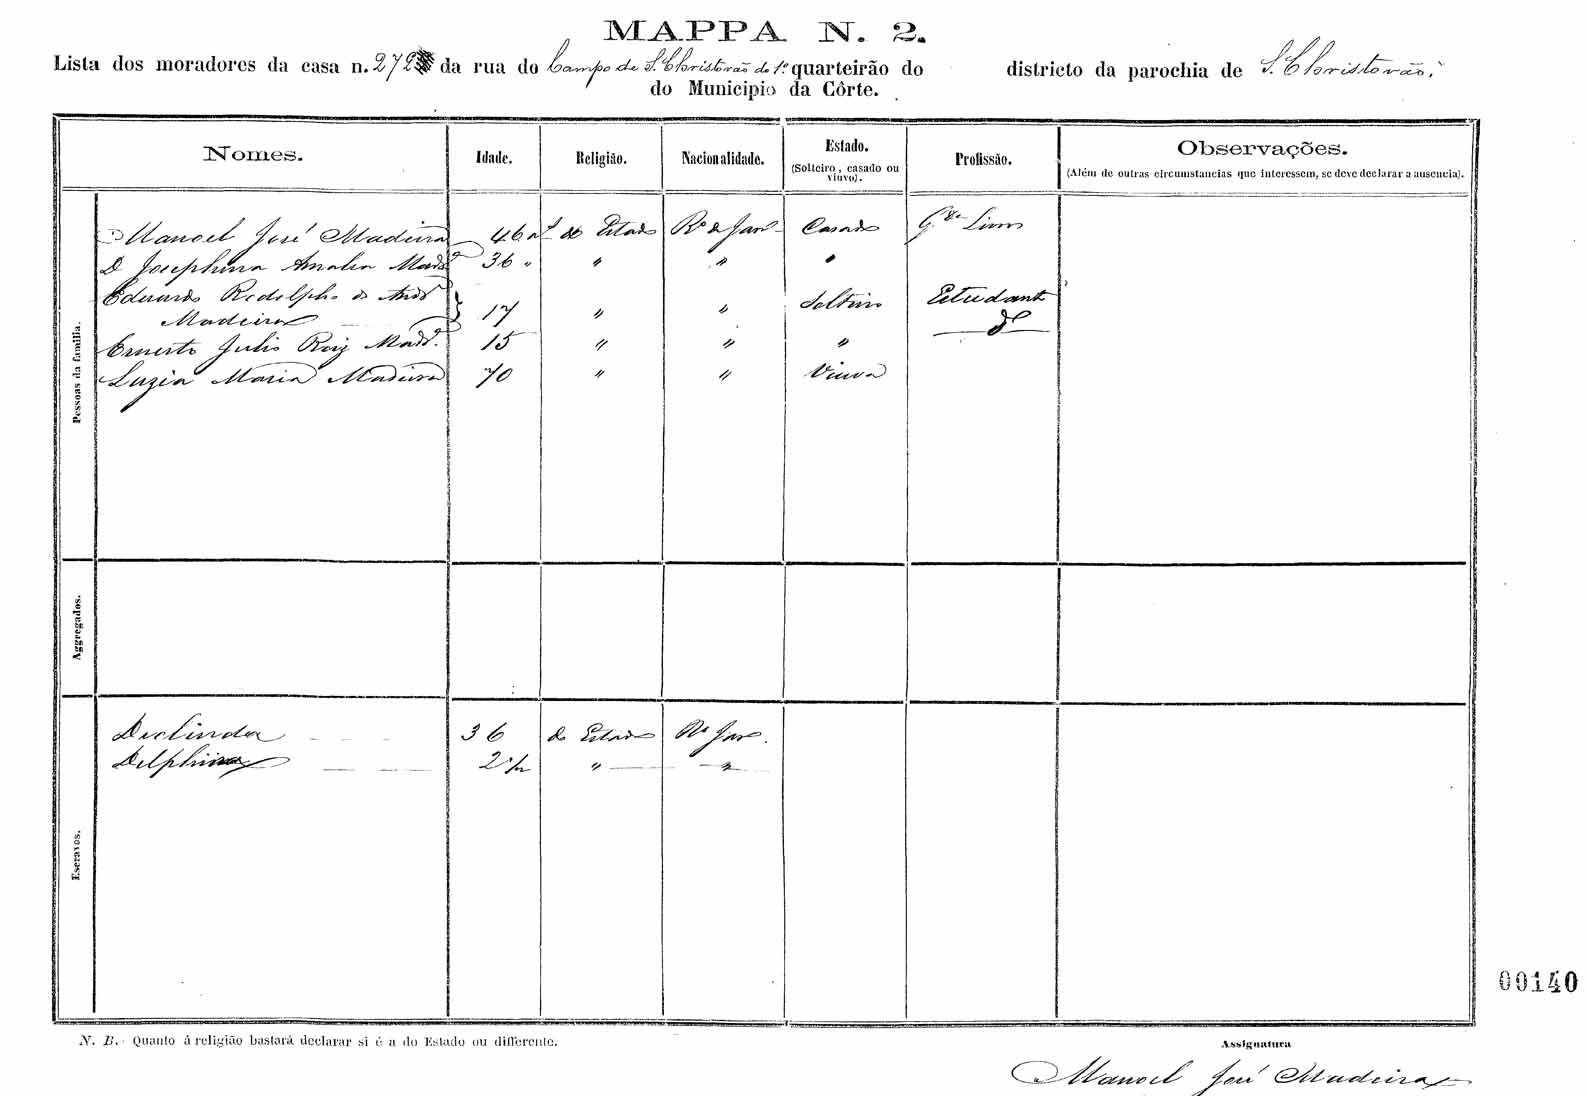 MAPPA N. 2.
Lista dos moradores da casa n. 272 da rua do Campo de S. Christovão do 1º quarteirão do districto da parochia de S. Christovão
do Municipio da Côrte.
Nomes. Idade. Religião. Nacionalidade. Estado. (Solteiro, casado ou viuvo). Profissão. Observações. (Além de outras circumstancias que interessem, se deve declarar a ausencia).
Pessoas da familia.
Manoel José Madeira 46 do Estado Rº de Janº Casado Gda Livros
D Josephina Amalia Madrª 36 " " " "
Eduardo Rodolpho de Andᵉ
Madeira 17 " " Solteiro Estudante
Ernesto Julio Roiz Madrª 15 " " " dº
Luzia Maria Madeira 70 " " Viuva
Aggregados.
Escravos.
Deolinda 36 do Estado Rº Janº
Delphina 2 " "
00140
N. B. Quanto á religião bastará declarar si é a do Estado ou differente.
Assignatura
Manoel José Madeira